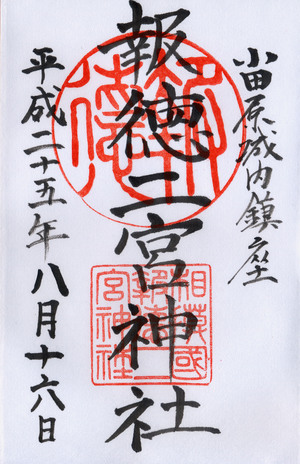 小田原城内鎮座
報徳二宮神社
平成二十五年八月十六日
報徳
相模國
報徳二
宮神社